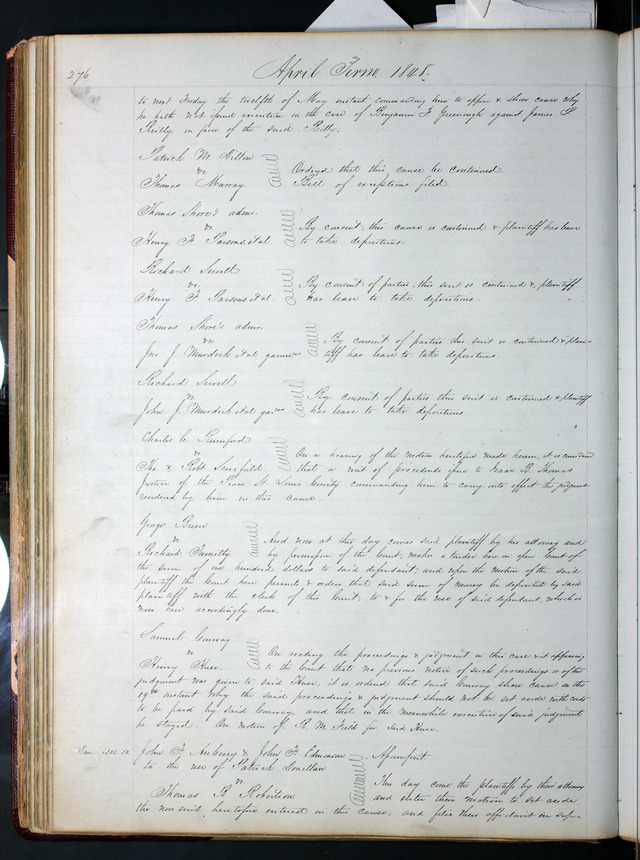 276
April Term 1848.
to next Friday the twelfth of May instant commanding him to appear & show cause why
he hath not issued execution in the case of Benjamin F Greenough against James P
Reilly, in favor of the said Reilly.
Patrick M. Dillon
vs.
Thomas Murray
Ordered that this cause be continued
Bill of exceptions filed.
Thomas Shore's admr.
vs.
Henry F Parsons et al
By consent this cause is continued & plaintiff has leave
to take depositions.
Richard Sewell
vs.
Henry F Parsons et al
By consent of parties this suit is continued & plaintiff
has leave to take depositions.
Thomas Shore's admr.
vs.
Jno. J Murdock et al garnees
By consent of parties this suit is continued & plain-
tiff has leave to take depositions.
Richard Sewell
vs.
John J Murdock et al garees
By consent of parties this suit is continued & plaintiff
has leave to take depositions.
Charles C.
vs.
Thos. & Robt.
On a hearing of the motion heretofore made herein, it is considered
that a writ of procedendo issue to Isaac B. Thomas
Justice of the Peace St Louis County commanding him to carry into effect the judgment
rendered by him in this cause.
George Breen
vs.
Richard
And now at this day comes said plaintiff by his attorney and
by permission of the Court, makes a tender here in open Court of
the sum of one hundred dollars to said defendant, and upon the motion of the said
plaintiff the Court here permits & orders that said sum of money be deposited by said
plaintiff with the clerk of this Court to & for the use of said defendant, which is
now here accordingly done.
Samuel Conway
vs.
Henry
On reading the proceedings & judgment in this case & it appearing
to the Court that no previous notice of such proceedings or of the
judgment was given to said it is ordered that said Conway show cause on the
19th instant why the said proceedings & judgment should not be set aside with costs
to be paid by said Conway, and that in the meanwhile execution of said judgment
be stayed. On motion of R. M. Field for said
John F & John F. Edmonson
to the use of Patrick
vs.
Thomas R Robertson
Assumpsit.
This day come the plaintiffs by their attorney
and enter their motion to set aside
the non suit heretofore entered in this cause, and files their affidavit in sup-